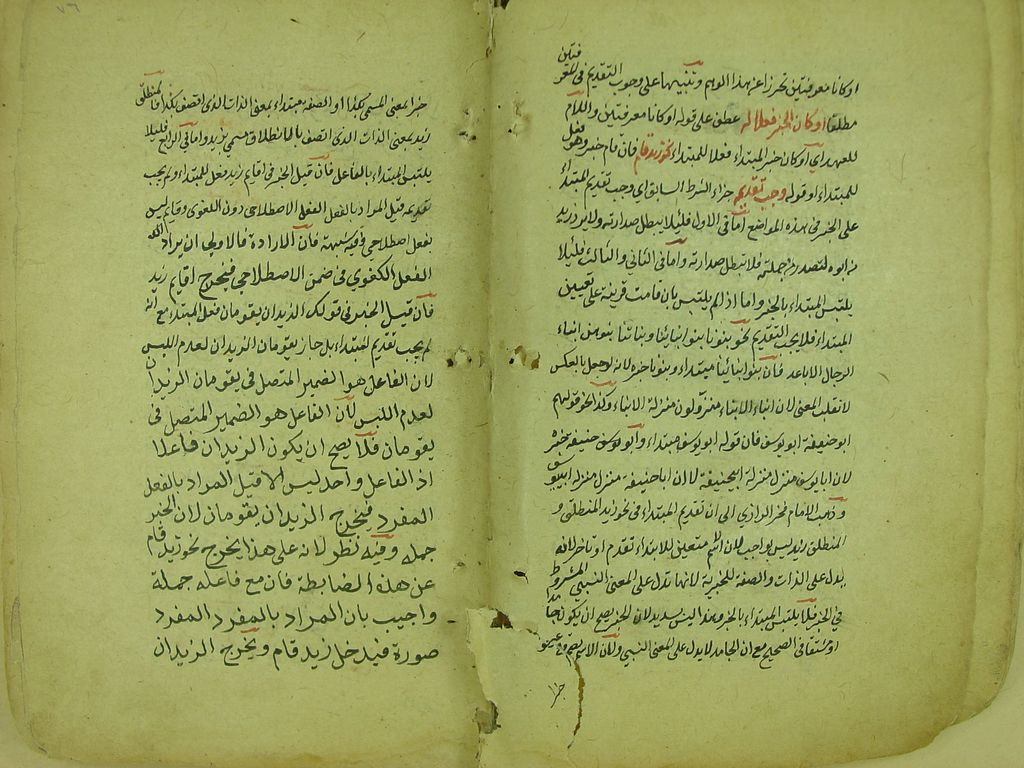 او كانا معرفتين تحرزا عن هذا الوهم وتنبيها على وجوب التقديم في المعرفتين
مطلقا او كان الخبر فعلا له عطف على قوله او كانا معرفتين واللام
للعهد اي او كان خبر المبتداء فعلا للمبتداء نحو زيد قام فان قام خبر وهو فعل
للمبتداء او قوله وجب تقديمه جزاء الشرط السابق اي وجب تقديم المبتداء
على الخبر في هذه المواضع اما في الاول فلئلا يبطل صدارته ولا يرد زيد
من ابوه لتصدره في جملته فلا تبطل صدارته واما في الثاني والثالث فلئلا
يلتبس المبتداء بالخبر واما اذا لم يلتبس بان قامت قرينة على تعيين
المبتداء فلا يجب التقديم نحو بنونا بنو ابنائنا وبناتنا بنوهن ابناء
الرجال الاباعد فان بنو ابنائنا مبتداء وبنونا خبره لانه لو جعل بالعكس
لانقلب المعنى لان ابناء الابناء منزلون منزلة الابناء وكذا نحو قولهم
ابو حنيفة ابو يوسف فان قوله ابو يوسف مبتداء وابو حنيفة خبره
لان ابا يوسف منزل منزلة ابي حنيفة لا ان ابا حنيفة منزل منزلة ابي يوسف
وذهب الامام فخر الرازي الى ان تقديم المبتداء في نحو زيد المنطلق و
المنطلق زيد ليس بواجب لان الاسم متعين للابتداء تقدم او تاخر لانه
يدل على الذات والصفة للخبرية لانها تدل على المعنى النسبي المشروط
في الخبر فلا يلتبس المبتداء بالخبر وهذا ليس بسديد لان الخبر يصح ان يكون جامدا
او مشتقا في الصحيح مع ان الجامد لا يدل على المعنى النسبي ولان الاسم يصح وقوعه
خبرا
خبرا بمعنى المسمى بكذا او الصفة مبتداء بمعنى الذات الذي اتصف بكذا فالمنطلق
زيد بمعنى الذات الذي اتصف بالانطلاق مسمى بزيد واما في الرابع فلئلا
يلتبس المبتداء بالفاعل فان قيل الخبر في اقايم زيد فعل للمبتداء ولم يجب
تقديمه قيل المراد بالفعل الفعل الاصطلاحي دون اللغوي وقايم ليس
بفعل اصطلاحي وفيه شبهة فان الارادة فالاولى ان يراد
الفعل اللغوي في ضمن الاصطلاحي فيخرج اقايم زيد
فان قيل الخبر في قولك الزيدان يقومان فعل المبتداء مع انه
لم يجب تقديم المبتداء بل جاز يقومان الزيدان لعدم اللبس
لان الفاعل هو الضمير المتصل في يقومان الزيدان
لعدم اللبس لان الفاعل هو الضمير المتصل في
يقومان فلا يصح ان يكون الزيدان فاعلا
اذ الفاعل واحد ليس الا قيل المراد بالفعل
المفرد فيخرج الزيدان يقومان لان الخبر
جملة وفيه نظر لانه على هذا يخرج نحو زيد قام
عن هذه الضابطة فان مع فاعله جملة
واجيب بان المراد بالمفرد المفرد
صورة فيدخل زيد قام ويخرج الزيدان